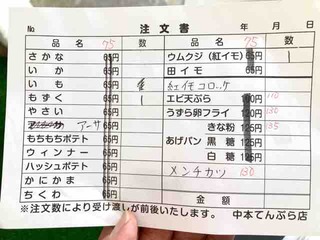 注文書 年 月 日
品名 75 数 品名 75 数
さかな 65円 ウムクジ(紅イモ) 65円 1
いか 65円 田イモ 65円
いも 65円 紅イモコロッケ
もずく 65円 1 エビ天ぷら 100円 110
アーサ 65円 うずら卵フライ 120円 130
もちもちポテト 65円 きな粉 125円 135
ウィンナー 65円 あげパン 黒糖 125円
ハッシュポテト 65円 白糖 125円
かにかま 65円 メンチカツ 130
ちくわ 65円 金額
※注文数により受け渡しが前後いたします。 中本てんぷら店